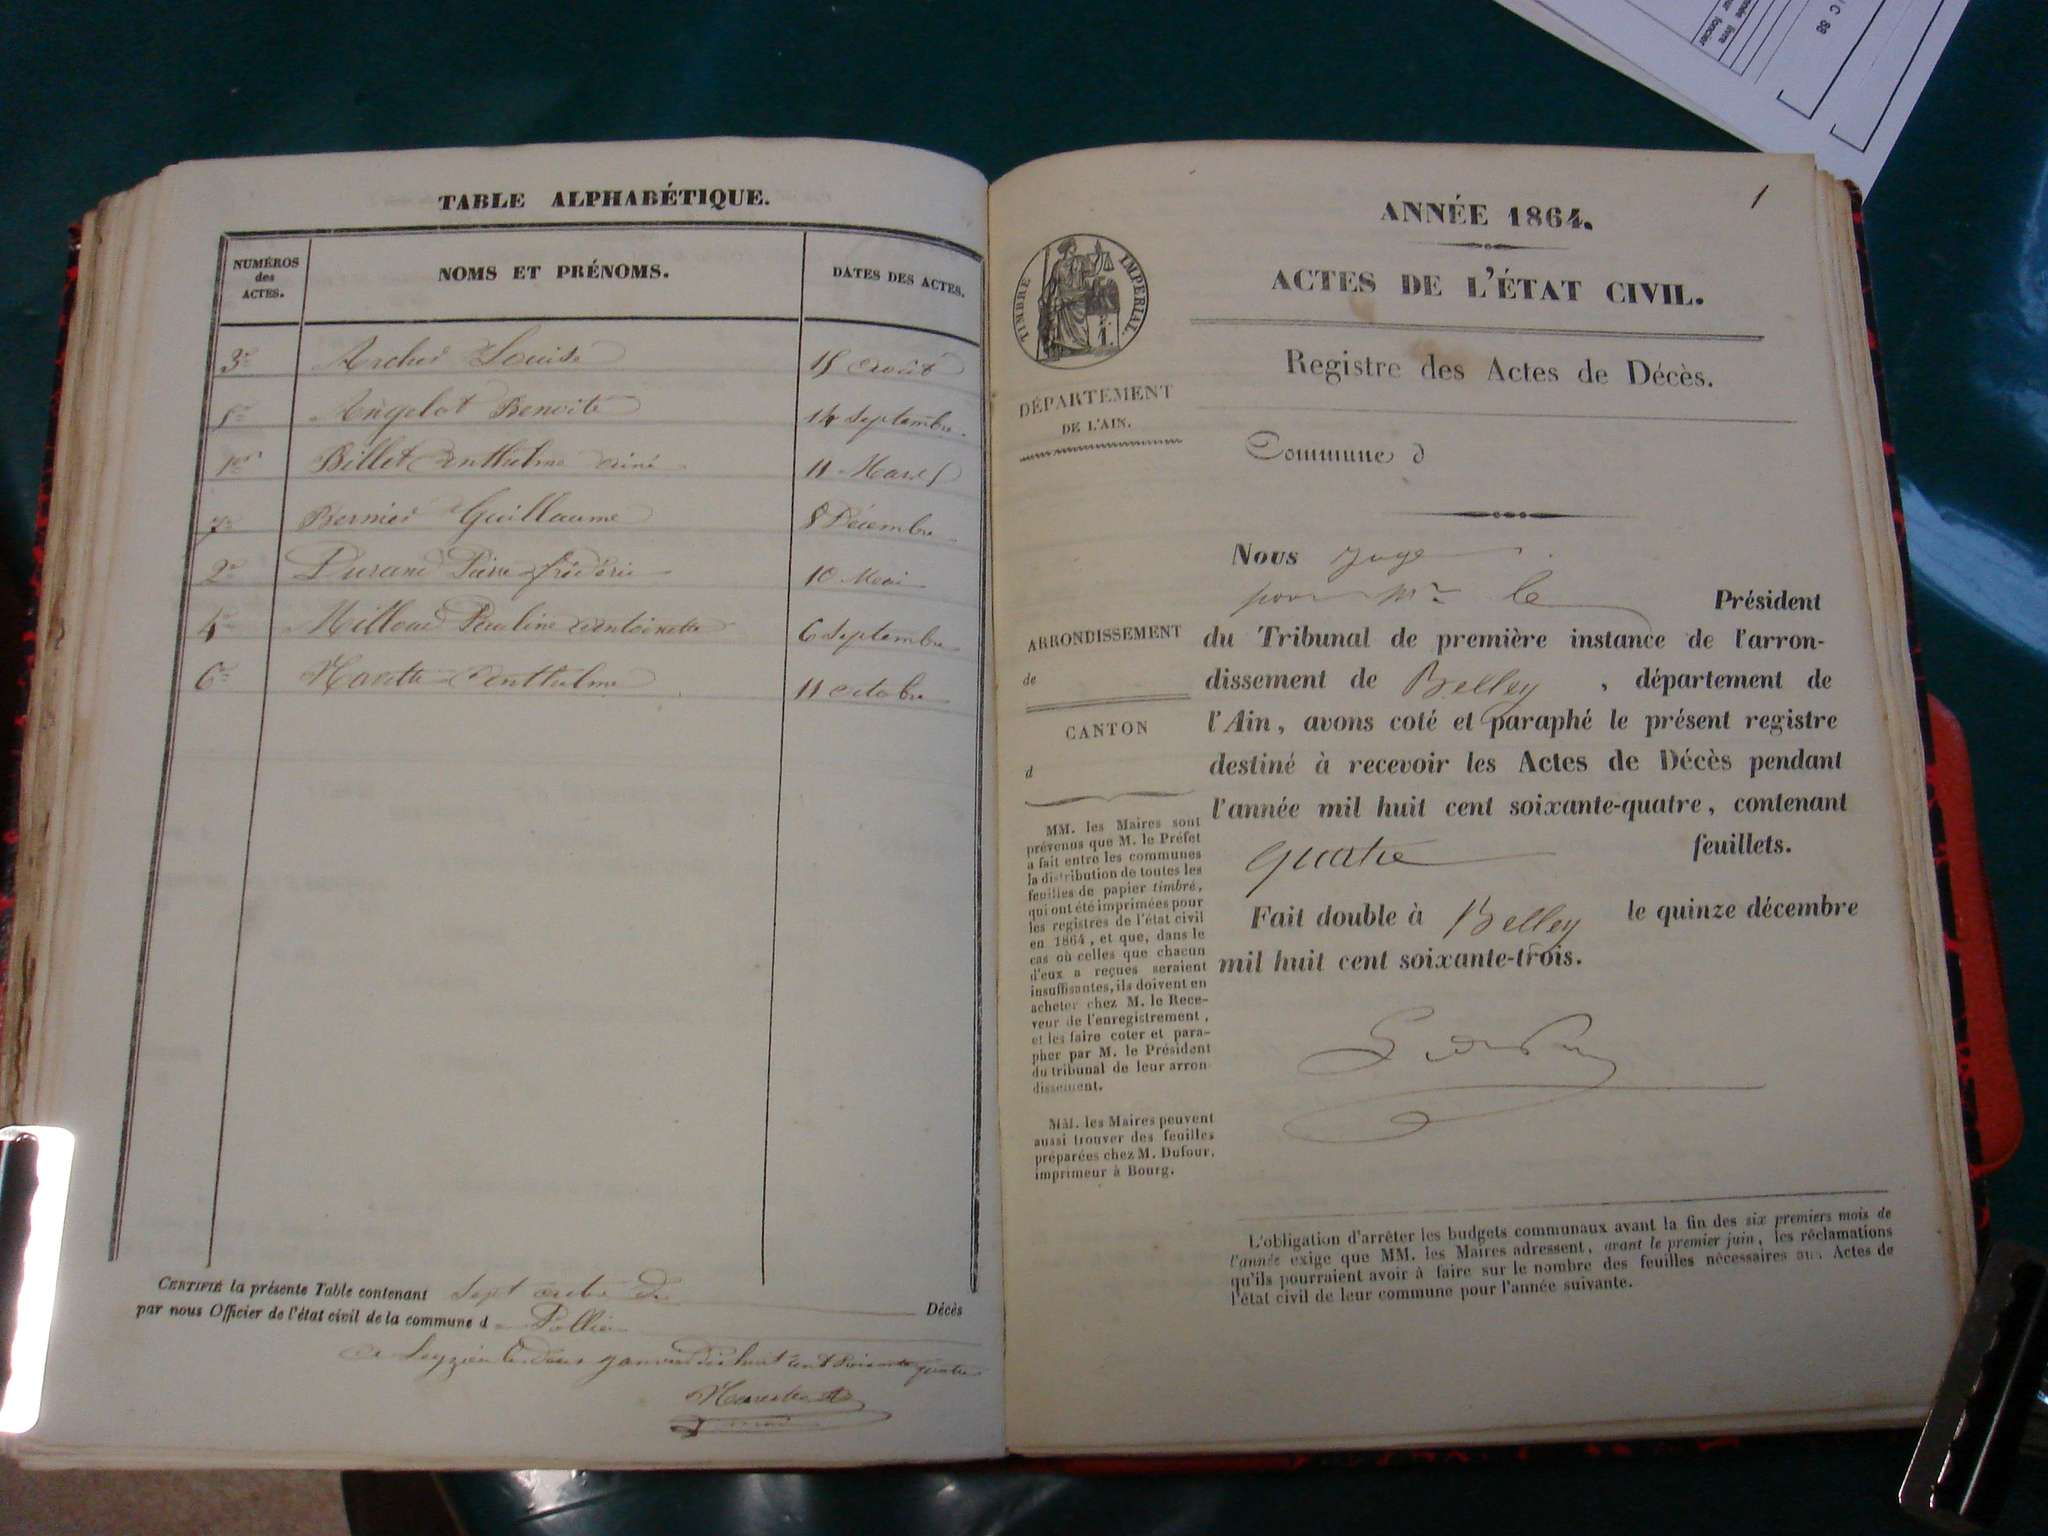 TABLE ALPHABÉTIQUE.
NUMÉROS des ACTES. NOMS ET PRÉNOMS. DATES DES ACTES.
3e Archer Louise 15 Août
5e Angelot Benoite 14 Septembre
1er Billet Anthelme ainé 11 Mars
7e Bernier Guillaume 8 Décembre
2e Durand Pierre frédéric 10 Mai
4e Antoinette 6 Septembre
6e Anthelme 11 octobre
CERTIFIÉ la présente Table contenant Sept actes de Décès
par nous Officier de l'état civil de la commune d Pollieu
janvier huit cent soixante quatre
1
ANNÉE 1864.
ACTES DE L'ÉTAT CIVIL.
Registre des Actes de Décès.
TIMBRE IMPÉRIAL.
DÉPARTEMENT
DE L'AIN.
Commune d
Nous juge
pour Mr le Président
du Tribunal de première instance de l'arron-
dissement de Belley, département de
l'Ain, avons coté et paraphé le présent registre
destiné à recevoir les Actes de Décès pendant
l'année mil huit cent soixante-quatre, contenant
quatre feuillets.
Fait double à Belley le quinze décembre
mil huit cent soixante-trois.
ARRONDISSEMENT
de
CANTON
d
MM. les Maires sont
prévenus que M. le Préfet
a fait entre les communes
la distribution de toutes les
feuilles de papier timbré,
qui ont été imprimées pour
les registres de l'état civil
en 1864, et que, dans le
cas où celles que chacun
d'eux a reçues seraient
insuffisantes, ils doivent en
acheter chez M. le Rece-
veur de l'enregistrement,
et les faire coter et para-
pher par M. le Président
du tribunal de leur arron
dissement.
MM. les Maires peuvent
aussi trouver des feuilles
préparées chez M. Dufour,
imprimeur à Bourg.
L'obligation d'arrêter les budgets communaux avant la fin des six premiers mois de
l'année exige que MM. les Maires adressent, avant le premier juin, les réclamations
qu'ils pourraient avoir à faire sur le nombre des feuilles nécessaires aux Actes de
l'état civil de leur commune pour l'année suivante.
C 88